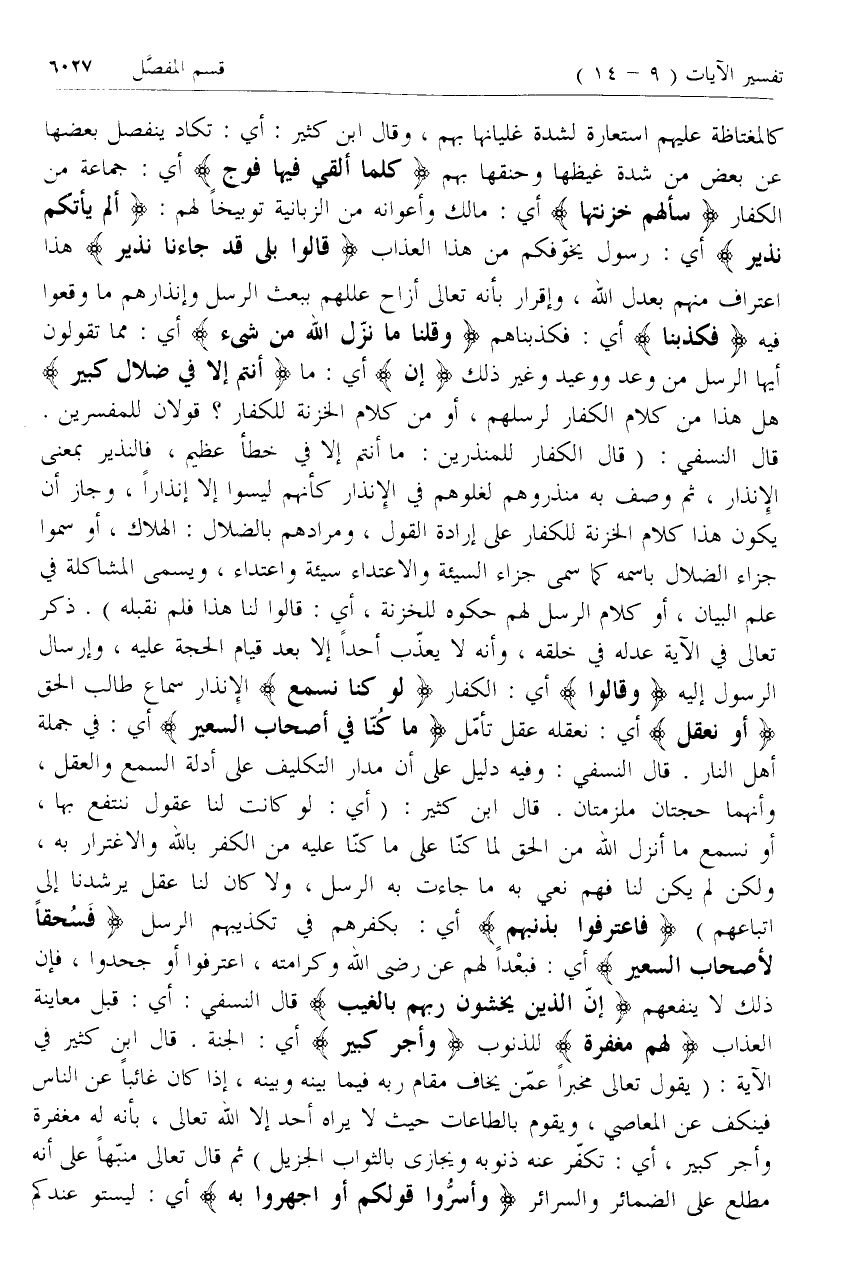 تفسير الآيات ( ٩ – ١٤ ) قسم المفصَّل ٦٠٢٧
كالمغتاظة عليهم استعارة لشدة غليانها بهم ، وقال ابن كثير : أي : تكاد ينفصل بعضها
عن بعض من شدة غيظها وحنقها بهم ﴿ كلما ألقي فيها فوج ﴾ أي : جماعة من
الكفار ﴿ سألهم خزنتها ﴾ أي : مالك وأعوانه من الزبانية توبيخاً لهم : ﴿ ألم يأتكم
نذير ﴾ أي : رسول يخوّفكم من هذا العذاب ﴿ قالوا بلى قد جاءنا نذير ﴾ هذا
اعتراف منهم بعدل الله ، وإقرار بأنه تعالى أزاح عللهم ببعث الرسل وإنذارهم ما وقعوا
فيه ﴿ فكذبنا ﴾ أي : فكذبناهم ﴿ وقلنا ما نزّل الله من شيء ﴾ أي : مما تقولون
أيها الرسل من وعد ووعيد وغير ذلك ﴿ إن ﴾ أي : ما ﴿ أنتم إلا في ضلال كبير ﴾
هل هذا من كلام الكفار لرسلهم ، أو من كلام الخزنة للكفار ؟ قولان للمفسرين .
قال النسفي : ( قال الكفار للمنذرين : ما أنتم إلا في خطأ عظيم ، فالنذير بمعنى
الإنذار ، ثم وصف به منذروهم لغلوهم في الإنذار كأنهم ليسوا إلا إنذاراً ، وجاز أن
يكون هذا كلام الخزنة للكفار على إرادة القول ، ومرادهم بالضلال : الهلاك ، أو سموا
جزاء الضلال باسمه كما سمى جزاء السيئة والاعتداء سيئة واعتداء ، ويسمى المشاكلة في
علم البيان ، أو كلام الرسل لهم حكوه للخزنة ، أي : قالوا لنا هذا فلم نقبله ) . ذكر
تعالى في الآية عدله في خلقه ، وأنه لا يعذّب أحداً إلا بعد قيام الحجة عليه ، وإرسال
الرسول إليه ﴿ وقالوا ﴾ أي : الكفار ﴿ لو كنا نسمع ﴾ الإنذار سماع طالب الحق
﴿ أو نعقل ﴾ أي : نعقله عقل تأمّل ﴿ ما كُنّا في أصحاب السعير ﴾ أي : في جملة
أهل النار . قال النسفي : وفيه دليل على أن مدار التكليف على أدلة السمع والعقل ،
وأنهما حجتان ملزمتان . قال ابن كثير : ( أي : لو كانت لنا عقول ننتفع بها ،
أو نسمع ما أنزل الله من الحق لما كنّا على ما كنّا عليه من الكفر بالله والاغترار به ،
ولكن لم يكن لنا فهم نعي به ما جاءت به الرسل ، ولا كان لنا عقل يرشدنا إلى
اتباعهم ) ﴿ فاعترفوا بذنبهم ﴾ أي : بكفرهم في تكذيبهم الرسل ﴿ فَسُحقاً
لأصحاب السعير ﴾ أي : فبعْداً لهم عن رضى الله وكرامته ، اعترفوا أو جحدوا ، فإن
ذلك لا ينفعهم ﴿ إنّ الذين يخشون ربهم بالغيب ﴾ قال النسفي : أي : قبل معاينة
العذاب ﴿ لهم مغفرة ﴾ للذنوب ﴿ وأجر كبير ﴾ أي : الجنة . قال ابن كثير في
الآية : ( يقول تعالى مخبراً عمّن يخاف مقام ربه فيما بينه وبينه ، إذا كان غائباً عن الناس
فينكف عن المعاصي ، ويقوم بالطاعات حيث لا يراه أحد إلا الله تعالى ، بأنه له مغفرة
وأجر كبير ، أي : تكفّر عنه ذنوبه ويجازى بالثواب الجزيل ) ثم قال تعالى منبّهاً على أنه
مطلع على الضمائر والسرائر ﴿ وأسرُّوا قولكم أو اجهروا به ﴾ أي : ليستو عندكم